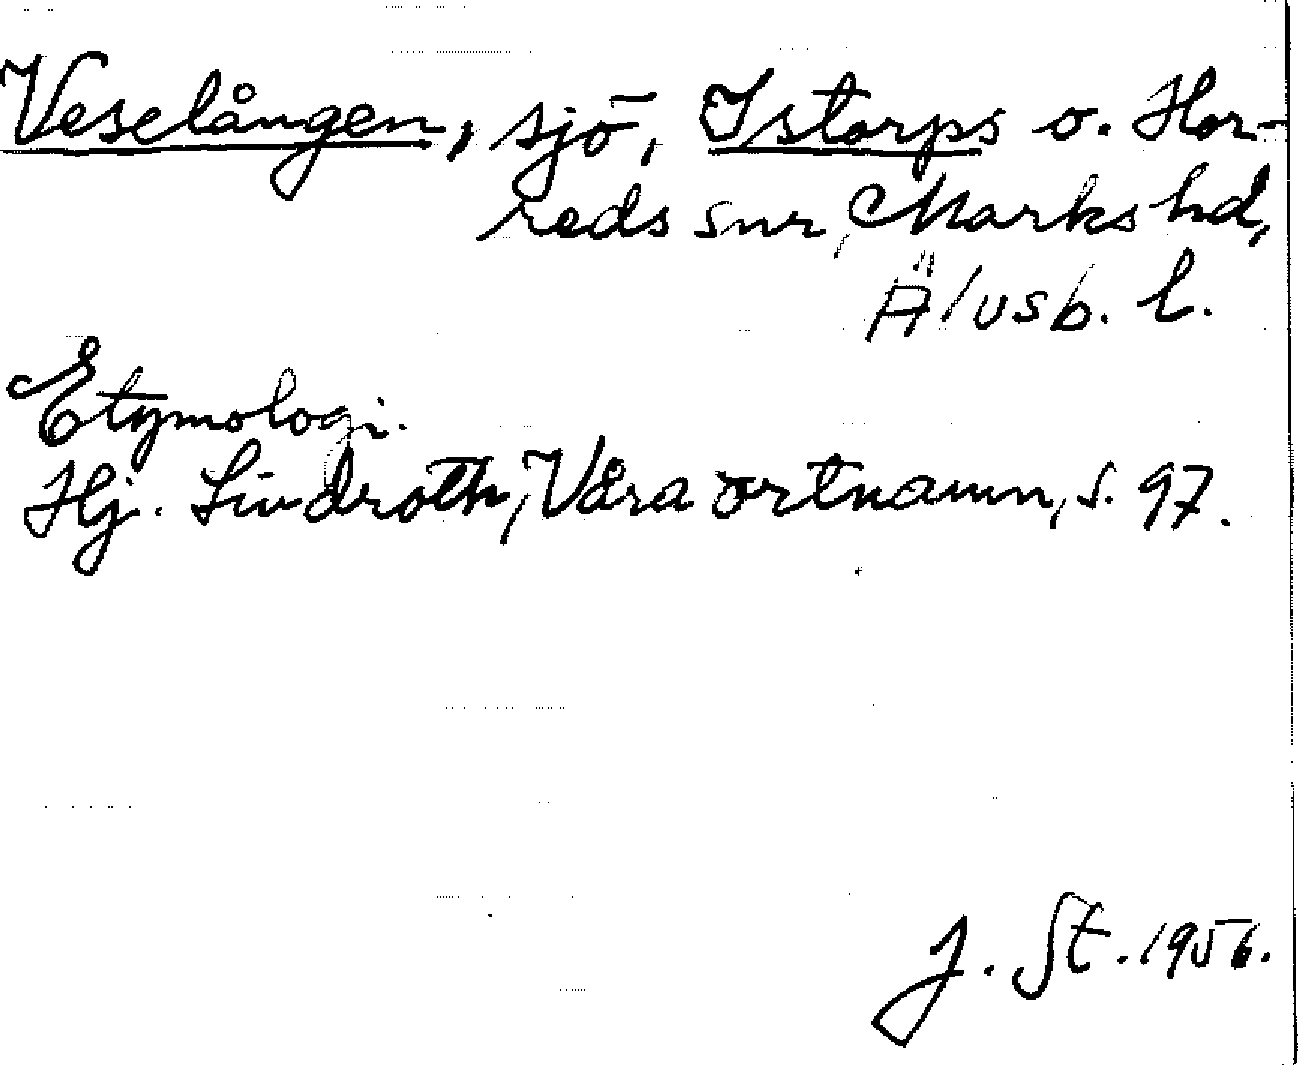 Veselången, sjö, Istorps o. Hor-
reds snr, Marks hd,
Älvsb. l.
Etymologi.
Hj. Lindroth, Våra ortnamn, s. 97.
J. St. 1956.